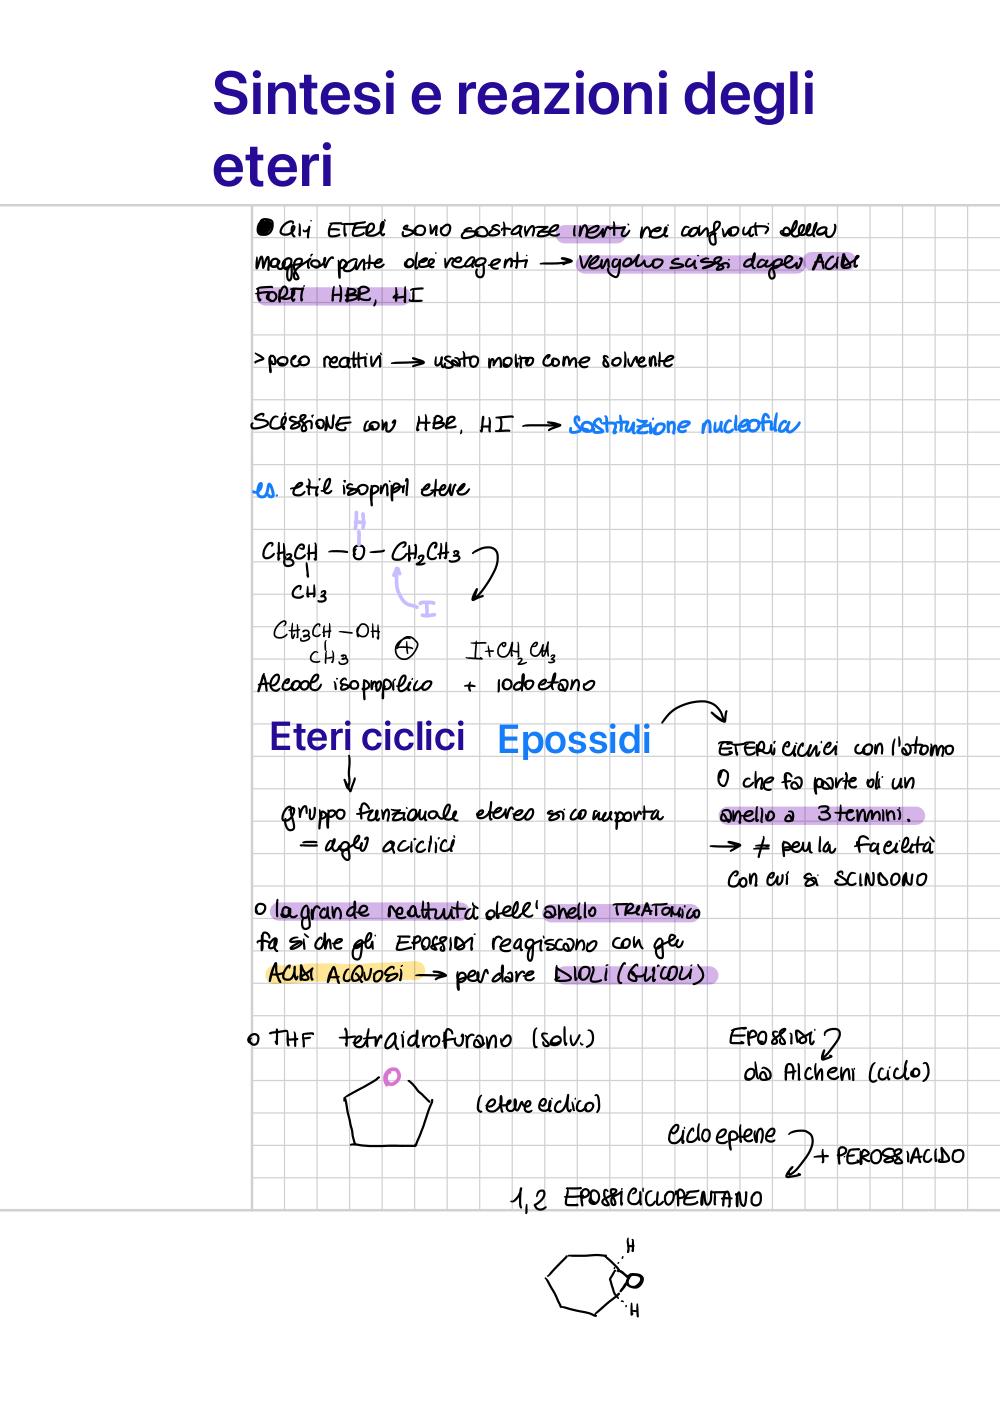 Sintesi e reazioni degli
eteri
● Gli ETERI sono sostanze inerti nei confronti della
maggior parte dei reagenti → vengono scissi dagli ACIDI
FORTI HBR, HI
> poco reattivi → usato molto come solvente
SCISSIONE con HBR, HI → sostituzione nucleofila
es. etil isopripil etere
H
CH3CH — O — CH2CH3
CH3
I
CH3CH — OH ⊕ I + CH2 CH3
CH3
Alcool isopropilico + iodoetano
Eteri ciclici Epossidi
gruppo funzionale etereo si comporta
= agli aciclici
ETERI ciclici con l'atomo
O che fa parte di un
anello a 3 termini.
→ ≠ per la facilità
con cui si SCINDONO
o la grande reattività dell'anello TRIATOMICO
fa si che gli EPOSSIDI reagiscono con gli
ACIDI ACQUOSI → per dare DIOLI (GLICOLI)
o THF tetraidrofurano (solv.)
O
(etere ciclico)
EPOSSIDI
da Alcheni (ciclo)
Cicloeptene
+ PEROSSIACIDO
1,2 EPOSSICICLOPENTANO
H
O
H